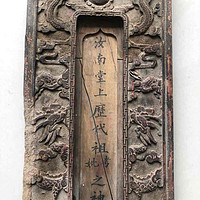 汝南堂上歷代祖
考
妣
之神